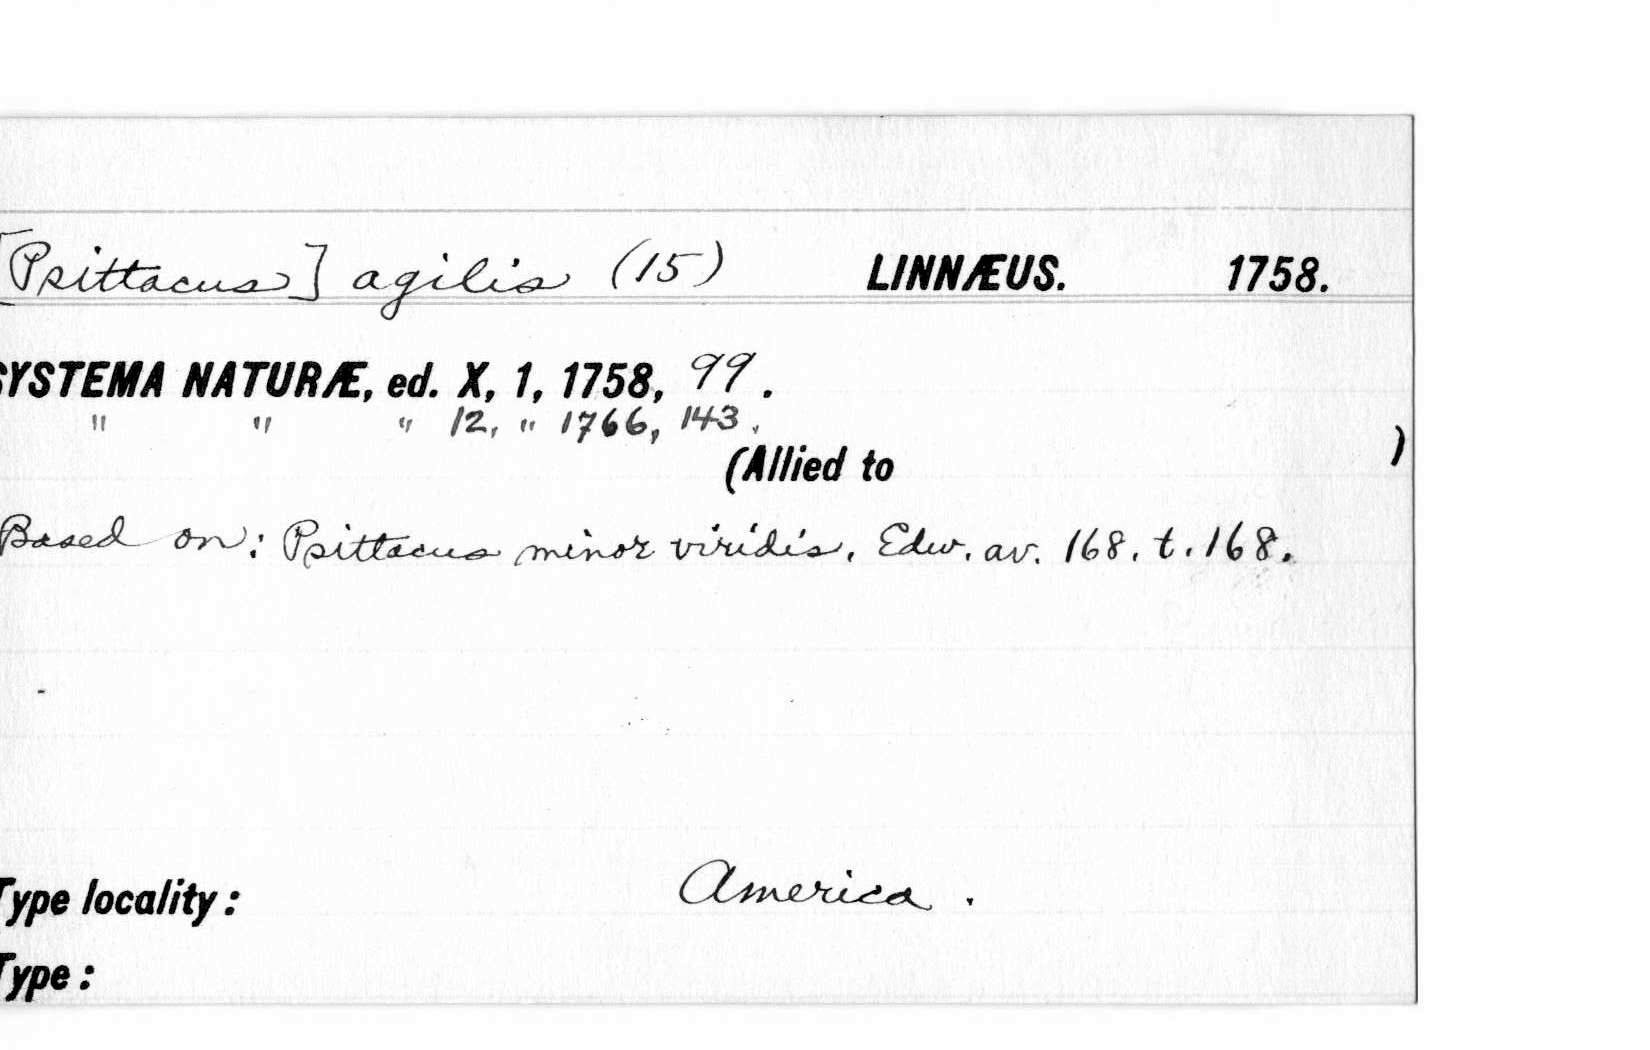 [Psittacus] agilis (15) LINNÆUS. 1758.
SYSTEMA NATURÆ, ed. X, 1, 1758, 99.
" " " 12, " 1766, 143.
(Allied to )
Based on: Psittacus minor viridis. Edw. av. 168. t. 168.
Type locality: America.
Type: